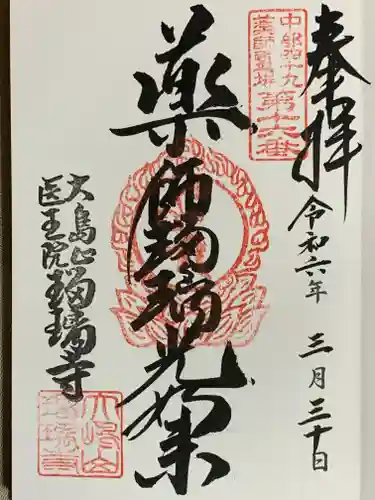 奉拝
令和六年 三月三十日
中部四十九
薬師霊場
第十六番
薬師瑠璃光如来
大島山
医王院瑠璃寺
大嶋山
瑠璃寺